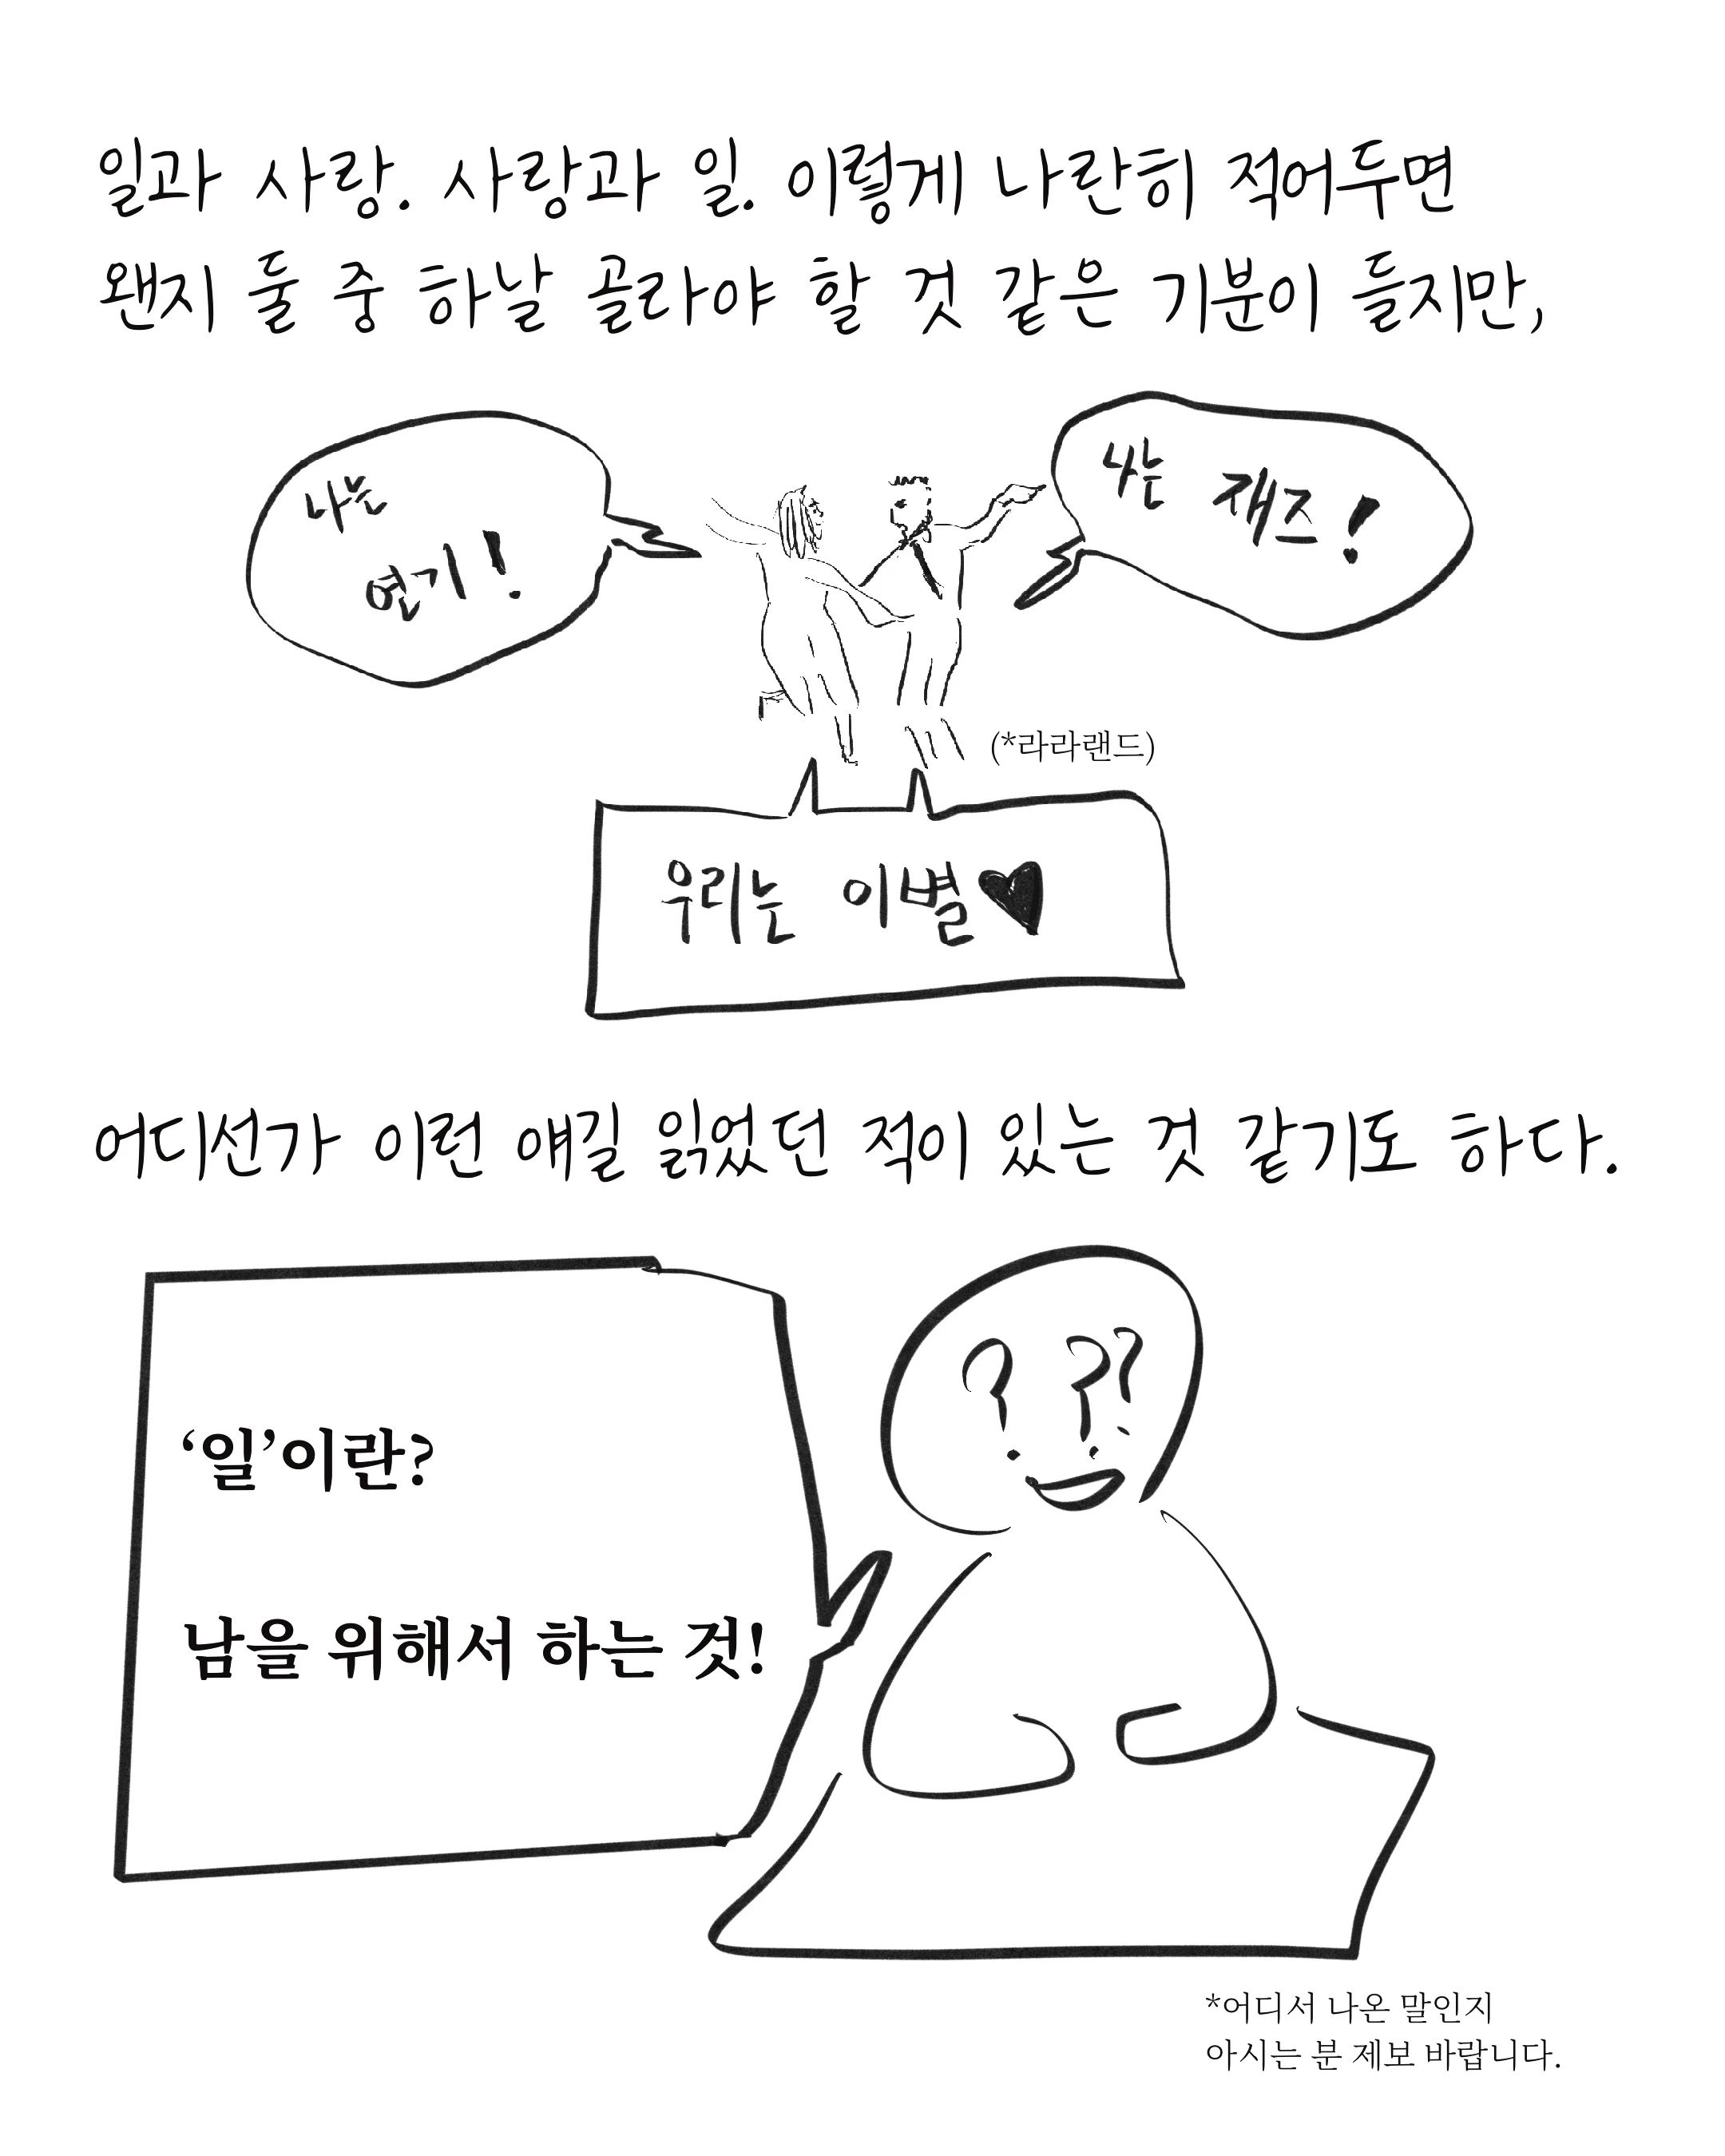 일과 사랑. 사랑과 일. 이렇게 나란히 적어두면
왠지 둘 중 하날 골라야 할 것 같은 기분이 들지만,
나는
연기!
나는 재즈!
(*라라랜드)
우리는 이별♥
어디선가 이런 얘길 읽었던 적이 있는 것 같기도 하다.
? ??
‘일’이란?
남을 위해서 하는 것!
*어디서 나온 말인지
아시는 분 제보 바랍니다.